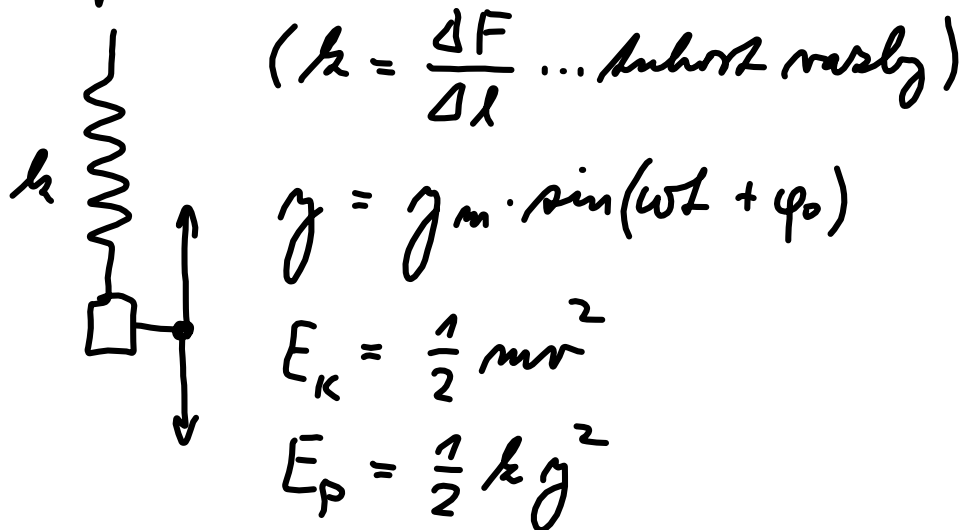 (k = ΔF/Δl ... tuhost vazby)
k
y = y_m · sin(ωt + φ₀)
E_K = 1/2 mv²
E_P = 1/2 k y²